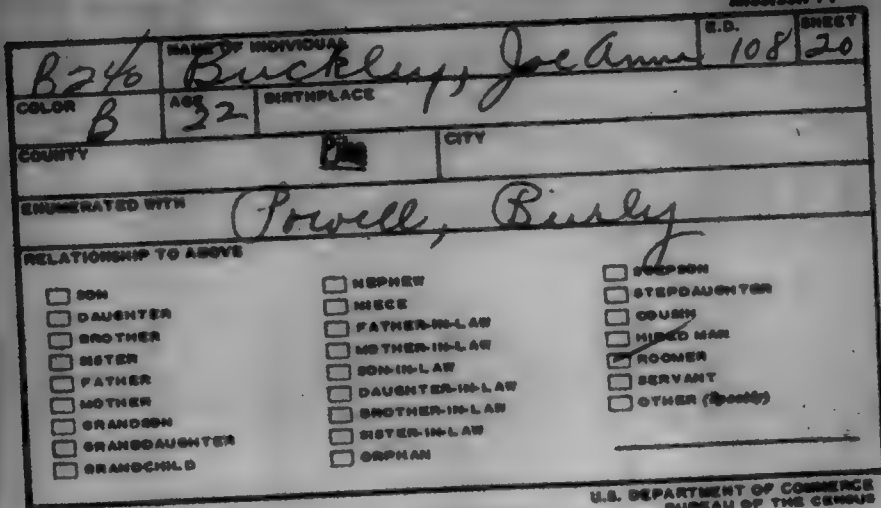 NAME OF INDIVIDUAL E.D. SHEET
B240 Buckley, Joe Anna 108 20
COLOR AGE BIRTHPLACE
B 22
COUNTY CITY
ENUMERATED WITH
Powell,
RELATIONSHIP TO ABOVE
SON
DAUGHTER
BROTHER
SISTER
FATHER
MOTHER
GRANDSON
GRANDDAUGHTER
GRANDCHILD
NEPHEW
NIECE
FATHER-IN-LAW
MOTHER-IN-LAW
SON-IN-LAW
DAUGHTER-IN-LAW
BROTHER-IN-LAW
SISTER-IN-LAW
ORPHAN
STEPSON
STEPDAUGHTER
COUSIN
HIRED MAN
ROOMER
SERVANT
OTHER (Specify)
U.S. DEPARTMENT OF COMMERCE
BUREAU OF THE CENSUS